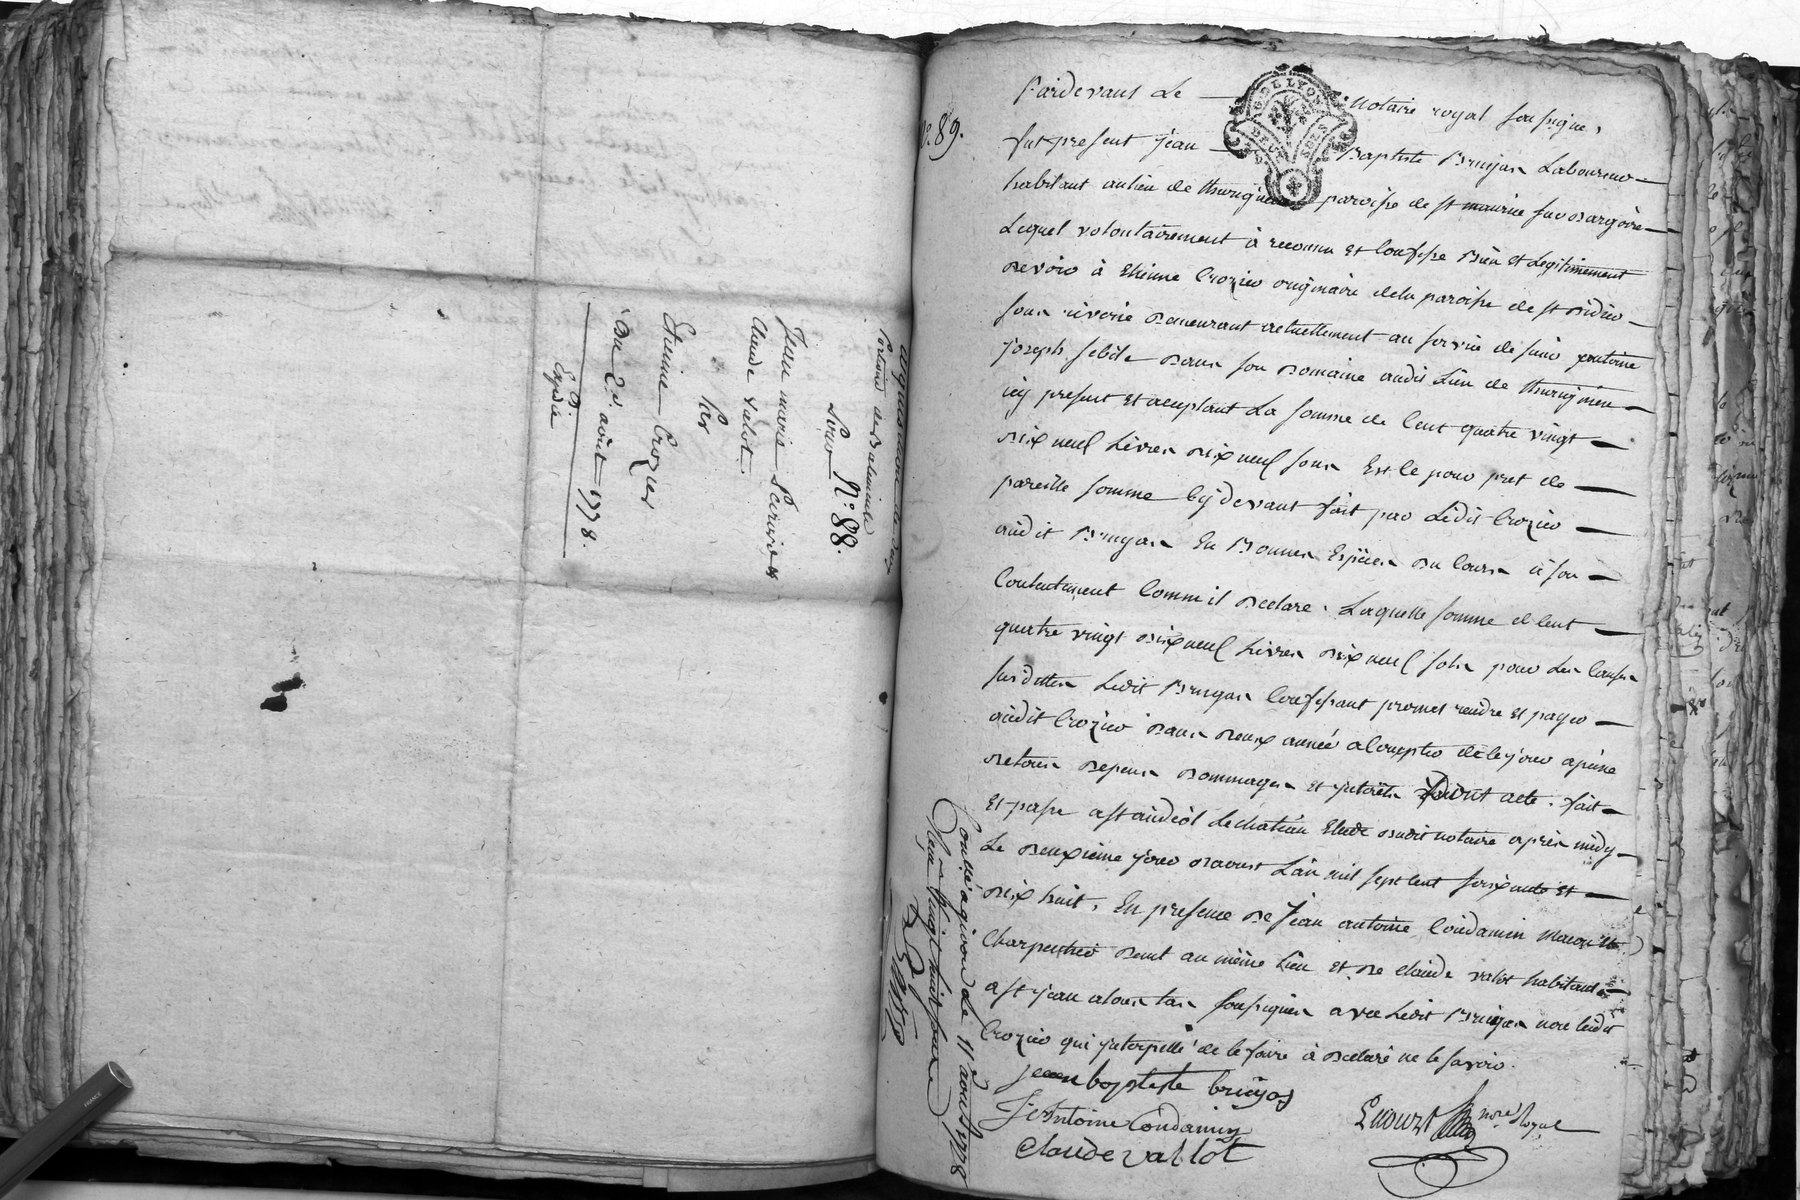 Jean marie
Claude valot
Par
Etienne Crozier
Du 2e. août 1778.
Expdié
Pour N°. 88.
N°. 89.
Pardevant Le notaire royal soussigné,
fut present jean Baptiste Bruyas Laboureur
habitant au lieu de paroisse de st maurice sur Dargoire
Lequel volontairement à reconnu et Confessé Bien et Legitimement
Devoir à Etienne Crozier originaire dela paroisse de st Didier
sous riverie Demeurant actuellement au service de sieur antoine
joseph Dans son Domaine audit Lieu de
icy present et acceptant La somme de Cent quatre vingt
Dix neuf Livres Dix neuf sous Et ce pour pret de
pareille somme Cy devant fait par Ledit Crozier
audit Bruyas En Bonnes Espèces Du Cours à son
Contentement Comm il Declare. Laquelle somme de Cent
quatre vingt Dix neuf Livres Dix neuf sols pour Les Causes
susdittes Ledit Bruyas Confessant promet rendre et payer
audit Crozier Dans Deux année a Compter de ce jour a peine
De tous Depens Dommages et jnterêts Dont acte. fait
Et passé a st andéol Le chateau Etude Dudit notaire après midy
Le Deuxieme jour Daoust L'an mil sept Cent soixante et
Dix huit, En presence De Jean antoine Condamin Macon et
Charpentier Demt au même Lieu et De claude valot habitant
a st jean atous tas soussignés avec Ledit Bruyas non Ledit
Crozier qui jnterpellé de le faire à Declaré ne le savoir.
jean baptiste bruyas
J Antoine Condamin
Claude vallot
nore Royal
Controllé a givors Le 11e aoust 1778
Reçu Vingt huit sols
G. DE LYON
DEUX SOLS
FRANCE